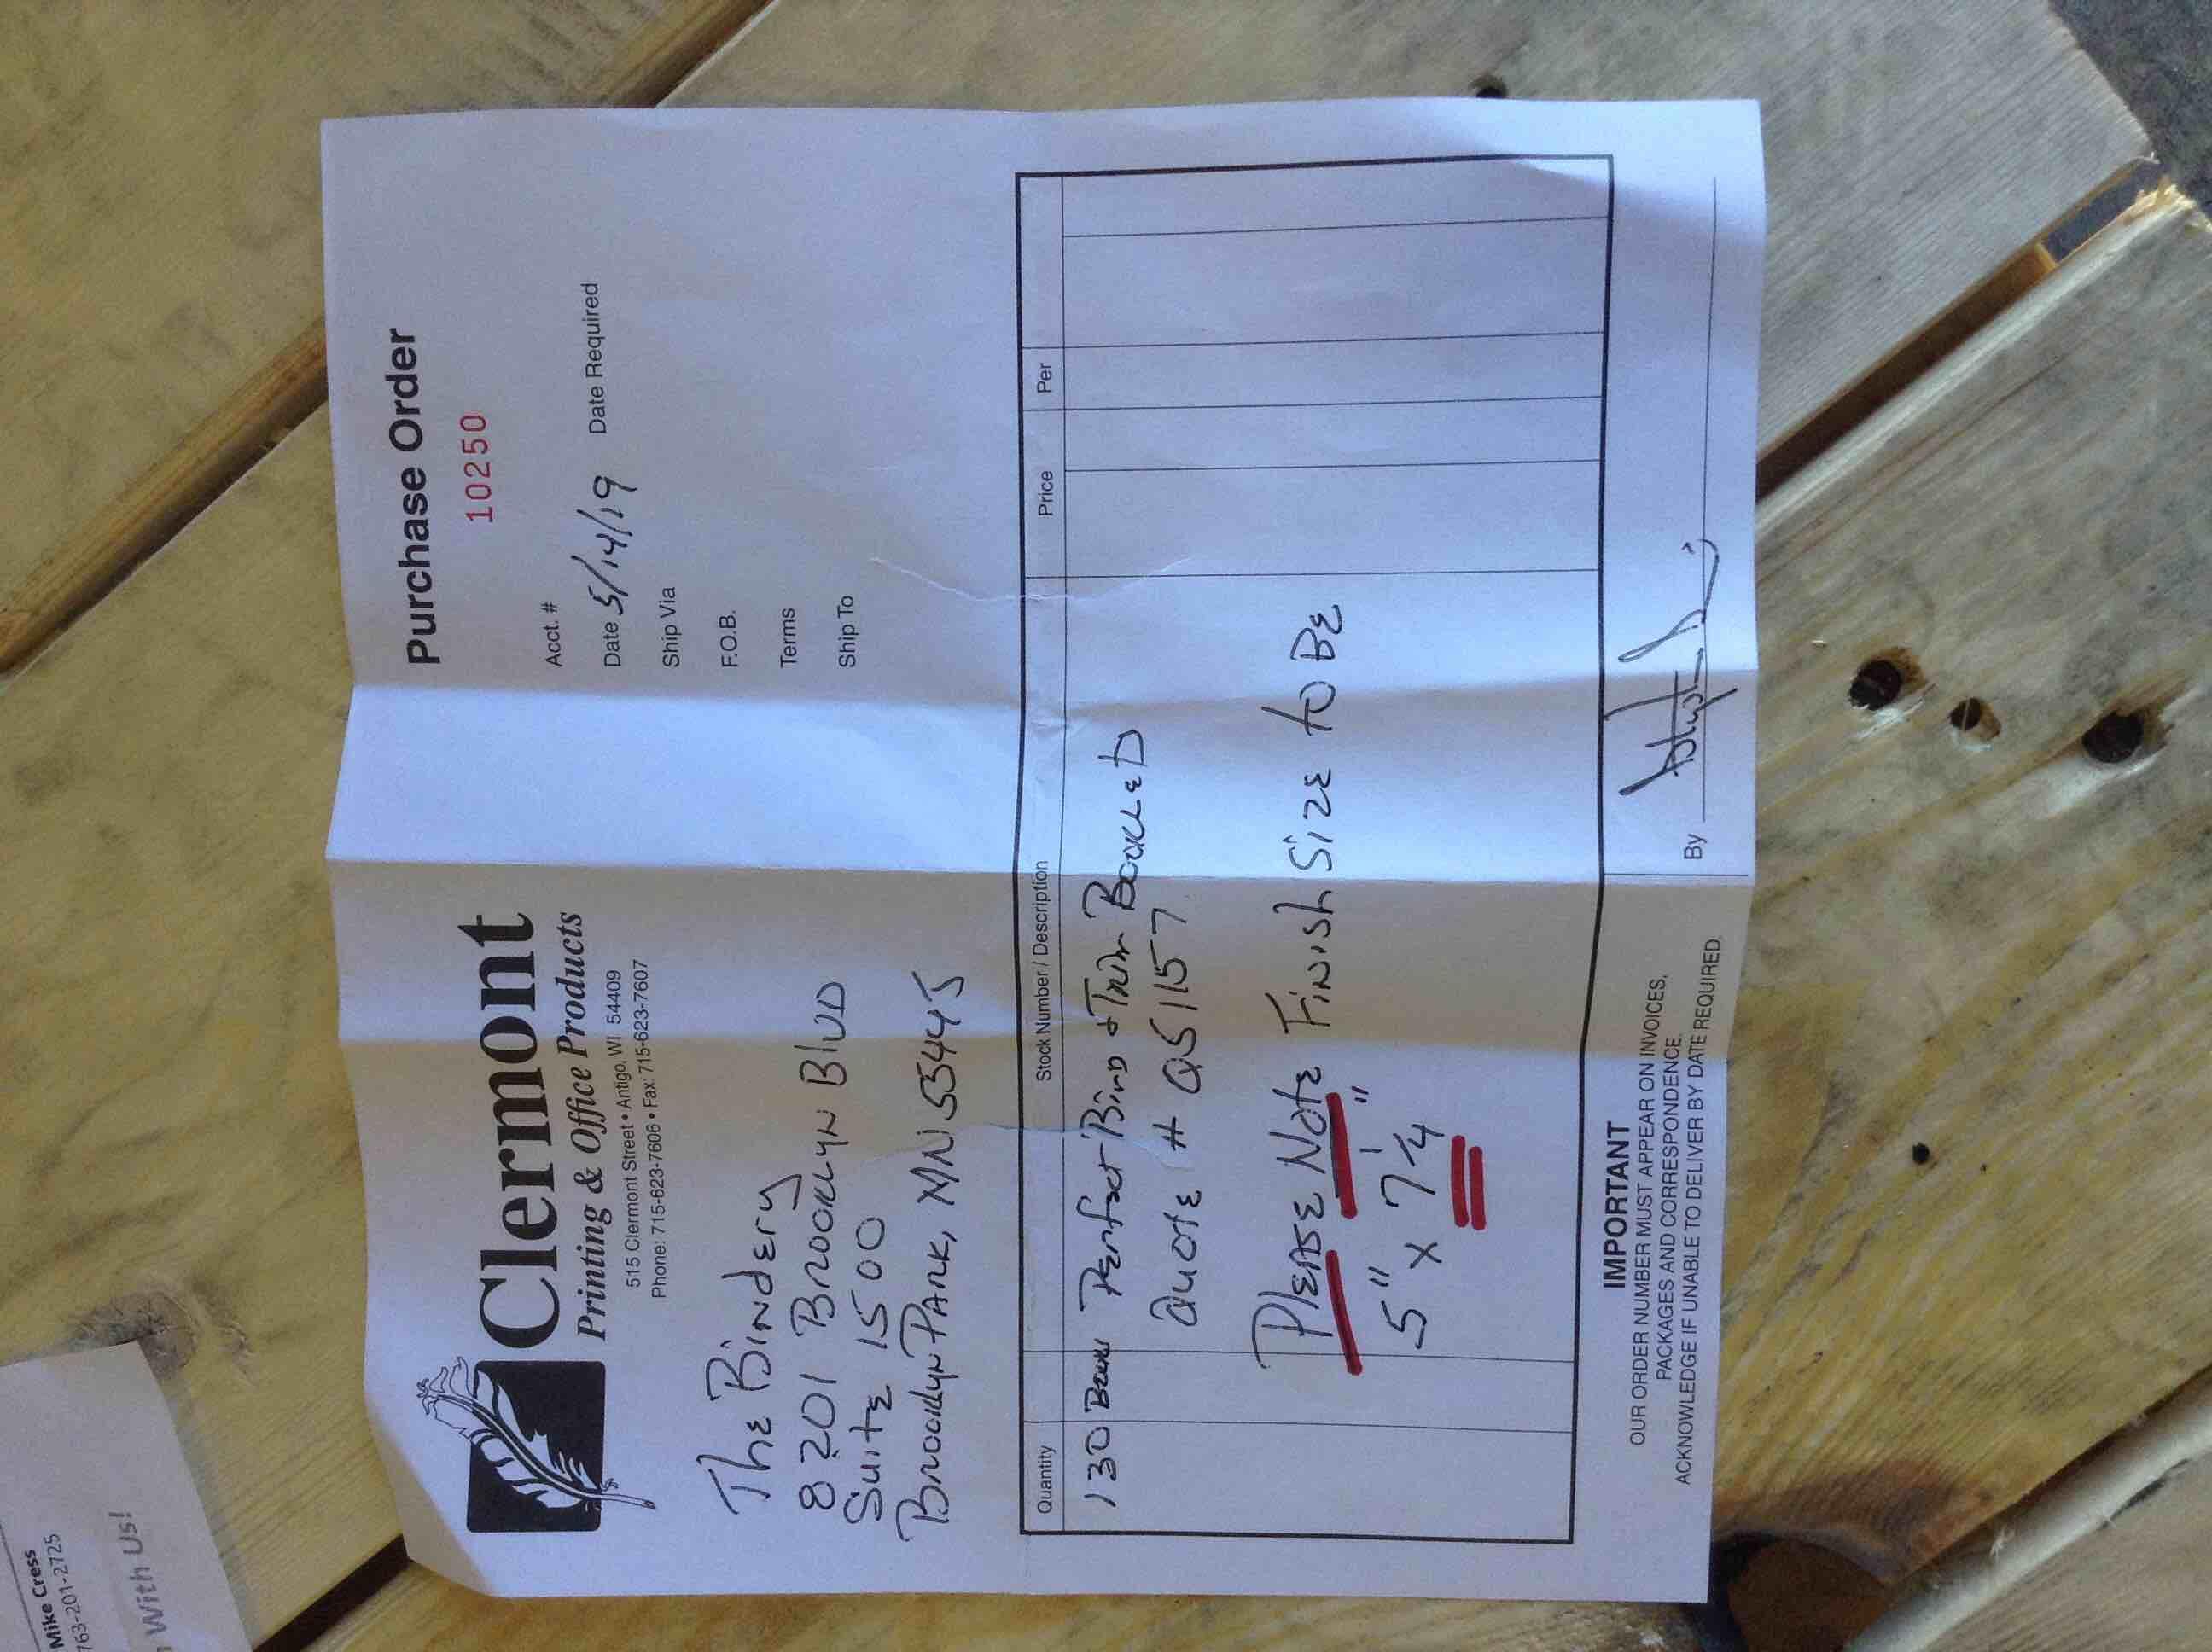 Clermont
Printing & Office Products
515 Clermont Street • Antigo, WI 54409
Phone: 715-623-7606 • Fax: 715-623-7607
Purchase Order
10250
Acct. #
Date 5/14/19 Date Required
Ship Via
F.O.B.
Terms
Ship To
The Bindery
8201 Brooklyn Blvd
Suite 1500
Brooklyn Park, MN 55445
Quantity Stock Number / Description Price Per
130 Perfect Bind & Trim
Quote # Q51157
Please Note Finish Size to Be
5" x 7 1/4"
IMPORTANT
OUR ORDER NUMBER MUST APPEAR ON INVOICES,
PACKAGES AND CORRESPONDENCE.
ACKNOWLEDGE IF UNABLE TO DELIVER BY DATE REQUIRED.
By
Mike Cress
763-201-2725
With Us!